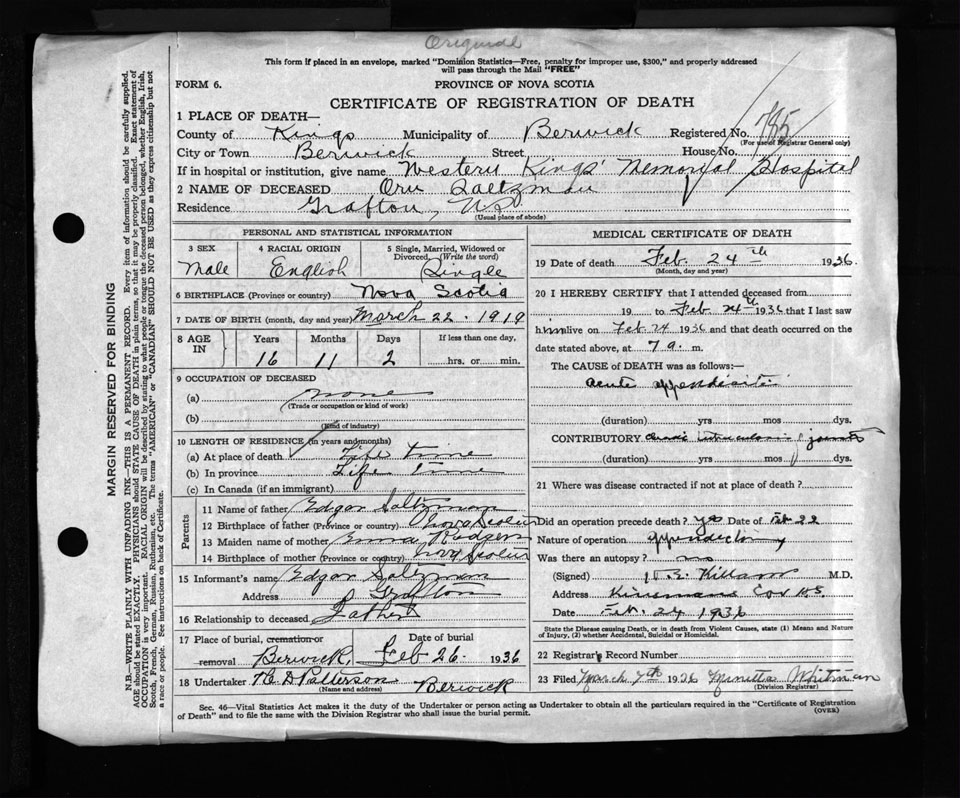 Original
This form if placed in an envelope, marked "Dominion Statistics—Free, penalty for improper use, $300," and properly addressed
will pass through the Mail "FREE"
FORM 6.
PROVINCE OF NOVA SCOTIA
CERTIFICATE OF REGISTRATION OF DEATH
1 PLACE OF DEATH—
County of Kings Municipality of Berwick Registered No. 785
(For use of Registrar General only)
City or Town Berwick Street House No.
If in hospital or institution, give name Western Kings' Memorial Hospital
2 NAME OF DECEASED Saltzman
Residence Grafton, N.S.
(Usual place of abode)
PERSONAL AND STATISTICAL INFORMATION
3 SEX
Male
4 RACIAL ORIGIN
English
5 Single, Married, Widowed or
Divorced, (Write the word)
Single
6 BIRTHPLACE (Province or country) Nova Scotia
7 DATE OF BIRTH (month, day and year) March 22 - 1919
8 AGE IN
Years Months Days If less than one day,
16 11 2 hrs. or min.
9 OCCUPATION OF DECEASED
(a) none
(Trade or occupation or kind of work)
(b)
(Kind of industry)
10 LENGTH OF RESIDENCE (in years and months)
(a) At place of death Life time
(b) In province Life time
(c) In Canada (if an immigrant)
Parents
11 Name of father Edgar Saltzman
12 Birthplace of father (Province or country) Nova Scotia
13 Maiden name of mother Rodgers
14 Birthplace of mother (Province or country) Nova Scotia
15 Informant's name Edgar Saltzman
Address Grafton
16 Relationship to deceased Father
17 Place of burial, cremation or Date of burial
removal Berwick, Feb 26. 1936
18 Undertaker D Patterson Berwick
(Name and address)
MEDICAL CERTIFICATE OF DEATH
19 Date of death Feb. 24th 1936.
(Month, day and year)
20 I HEREBY CERTIFY that I attended deceased from
19 to Feb 24th 1936 that I last saw
him alive on Feb 24 1936 and that death occurred on the
date stated above, at 7 a. m.
The CAUSE OF DEATH was as follows:—
acute appendicitis
(duration) yrs mos dys.
CONTRIBUTORY joints
(duration) yrs mos dys.
21 Where was disease contracted if not at place of death?
Did an operation precede death? yes Date of Feb 22
Nature of operation appendectomy
Was there an autopsy? no
(Signed) Killam M.D.
Address Kinsmans Cor N.S.
Date Feb. 24 1936
State the Disease causing Death, or in death from Violent Causes, state (1) Means and Nature
of Injury, (2) whether Accidental, Suicidal or Homicidal.
22 Registrar's Record Number
23 Filed March 7th 1936 Whitman
(Division Registrar)
Sec. 46—Vital Statistics Act makes it the duty of the Undertaker or person acting as Undertaker to obtain all the particulars required in the "Certificate of Registration
of Death" and to file the same with the Division Registrar who shall issue the burial permit.
(OVER)
MARGIN RESERVED FOR BINDING
N.B.—WRITE PLAINLY WITH UNFADING INK—THIS IS A PERMANENT RECORD. Every item of information should be carefully supplied.
AGE should be stated EXACTLY. PHYSICIANS should STATE CAUSE OF DEATH in plain terms, so that it may be properly classified. Exact statement of
OCCUPATION is very important. RACIAL ORIGIN will be described by stating to what people or tongue the deceased person belonged, whether English, Irish,
Scotch, French, German, Russian, Ruthenian, etc. The terms "AMERICAN" or "CANADIAN" SHOULD NOT BE USED as they express citizenship but not
a race or people. See instructions on back of Certificate.